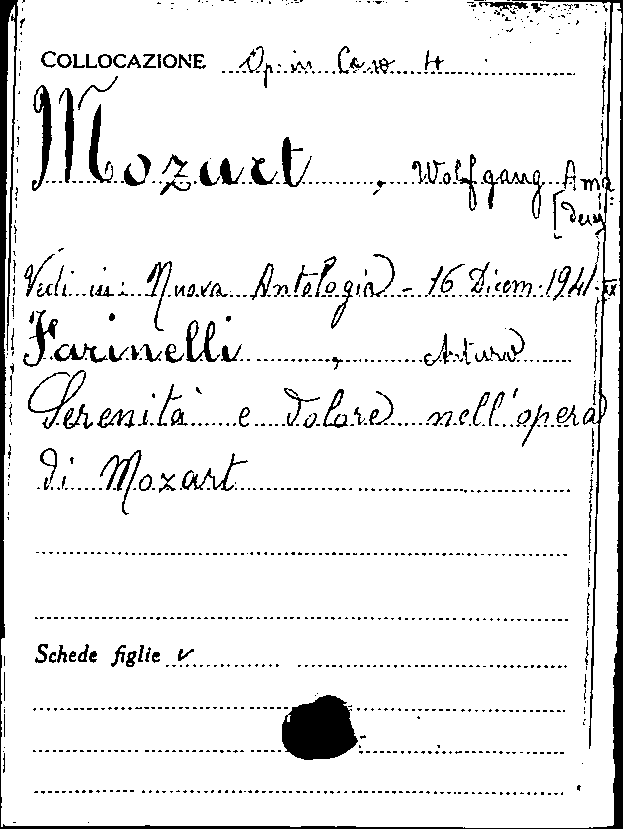 COLLOCAZIONE Op. in Caso 4
Mozart, Wolfgang Ama
[deus
Vedi in: Nuova Antologia - 16 Dicem. 1941 - XX
Farinelli, Arturo
Serenità e dolore nell'opera
di Mozart
Schede figlie v